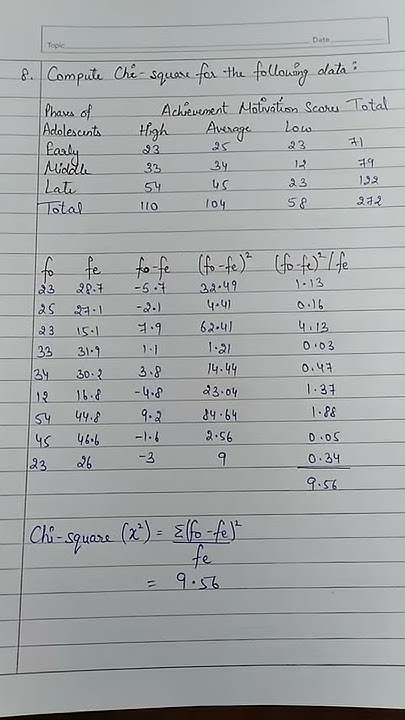 Topic Date
8. Compute Chi-square for the following data:
Phases of Achievement Motivation Scores Total
Adolescents High Average Low
Early 23 25 23 71
Middle 33 34 12 79
Late 54 45 23 122
Total 110 104 58 272
fo fe fo-fe (fo-fe)² (fo-fe)²/fe
23 28.7 -5.7 32.49 1.13
25 27.1 -2.1 4.41 0.16
23 15.1 7.9 62.41 4.13
33 31.9 1.1 1.21 0.03
34 30.2 3.8 14.44 0.47
12 16.8 -4.8 23.04 1.37
54 44.8 9.2 84.64 1.88
45 46.6 -1.6 2.56 0.05
23 26 -3 9 0.34
9.56
Chi-square (x²) = Σ(fo-fe)²
fe
= 9.56